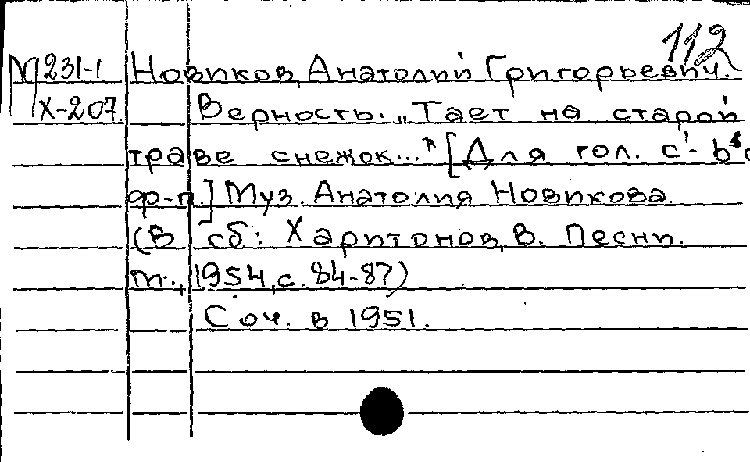 112
М 231-1 Новиков, Анатолий Григорьевич.
Х-207. Верность. „Тает на старой
траве снежок..." [Для гол. c¹- b¹ с
ф-п.] Муз. Анатолия Новикова.
(В сб: Харитонов, В. Песни.
М., 1954, с. 84-87)
Соч. в 1951.